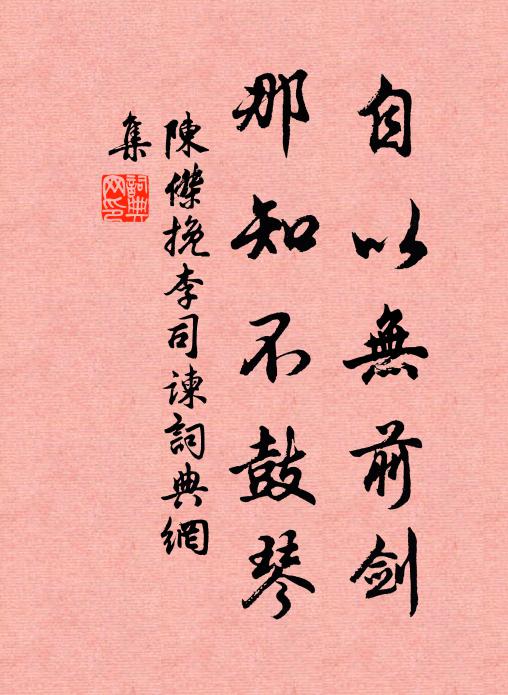 自以無前劍
那知不鼓琴
陳傑挽李司諫詞典網
集
詞典網印